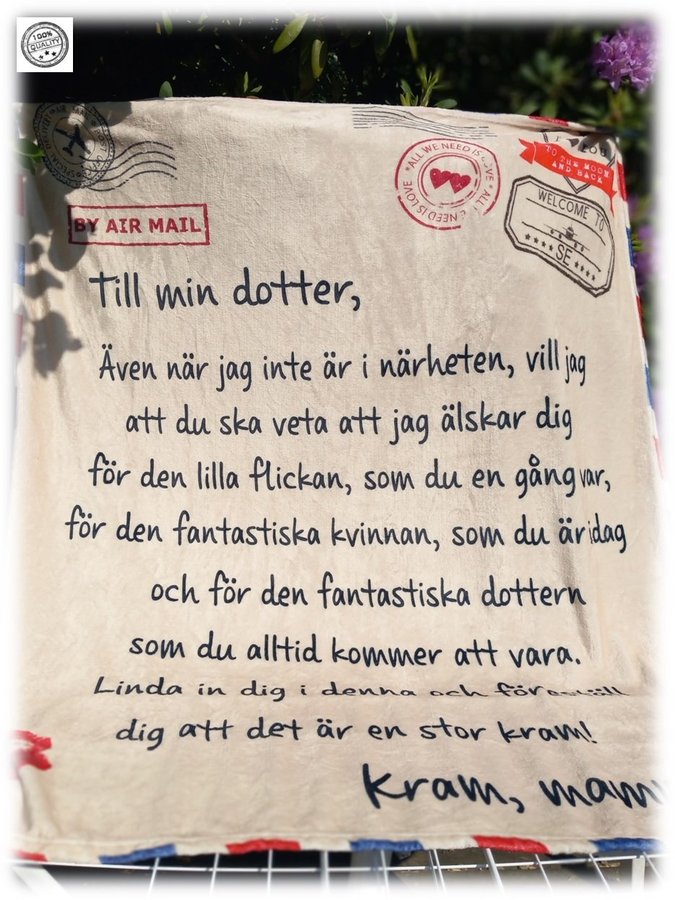 100%
QUALITY
BY AIR MAIL
ALL WE NEED IS LOVE * ALL WE NEED IS LOVE
TO THE MOON
AND BACK
WELCOME TO
SE
Till min dotter,
Även när jag inte är i närheten, vill jag
att du ska veta att jag älskar dig
för den lilla flickan, som du en gång var,
för den fantastiska kvinnan, som du är idag
och för den fantastiska dottern
som du alltid kommer att vara.
Linda in dig i denna och föreställ
dig att det är en stor kram!
Kram,